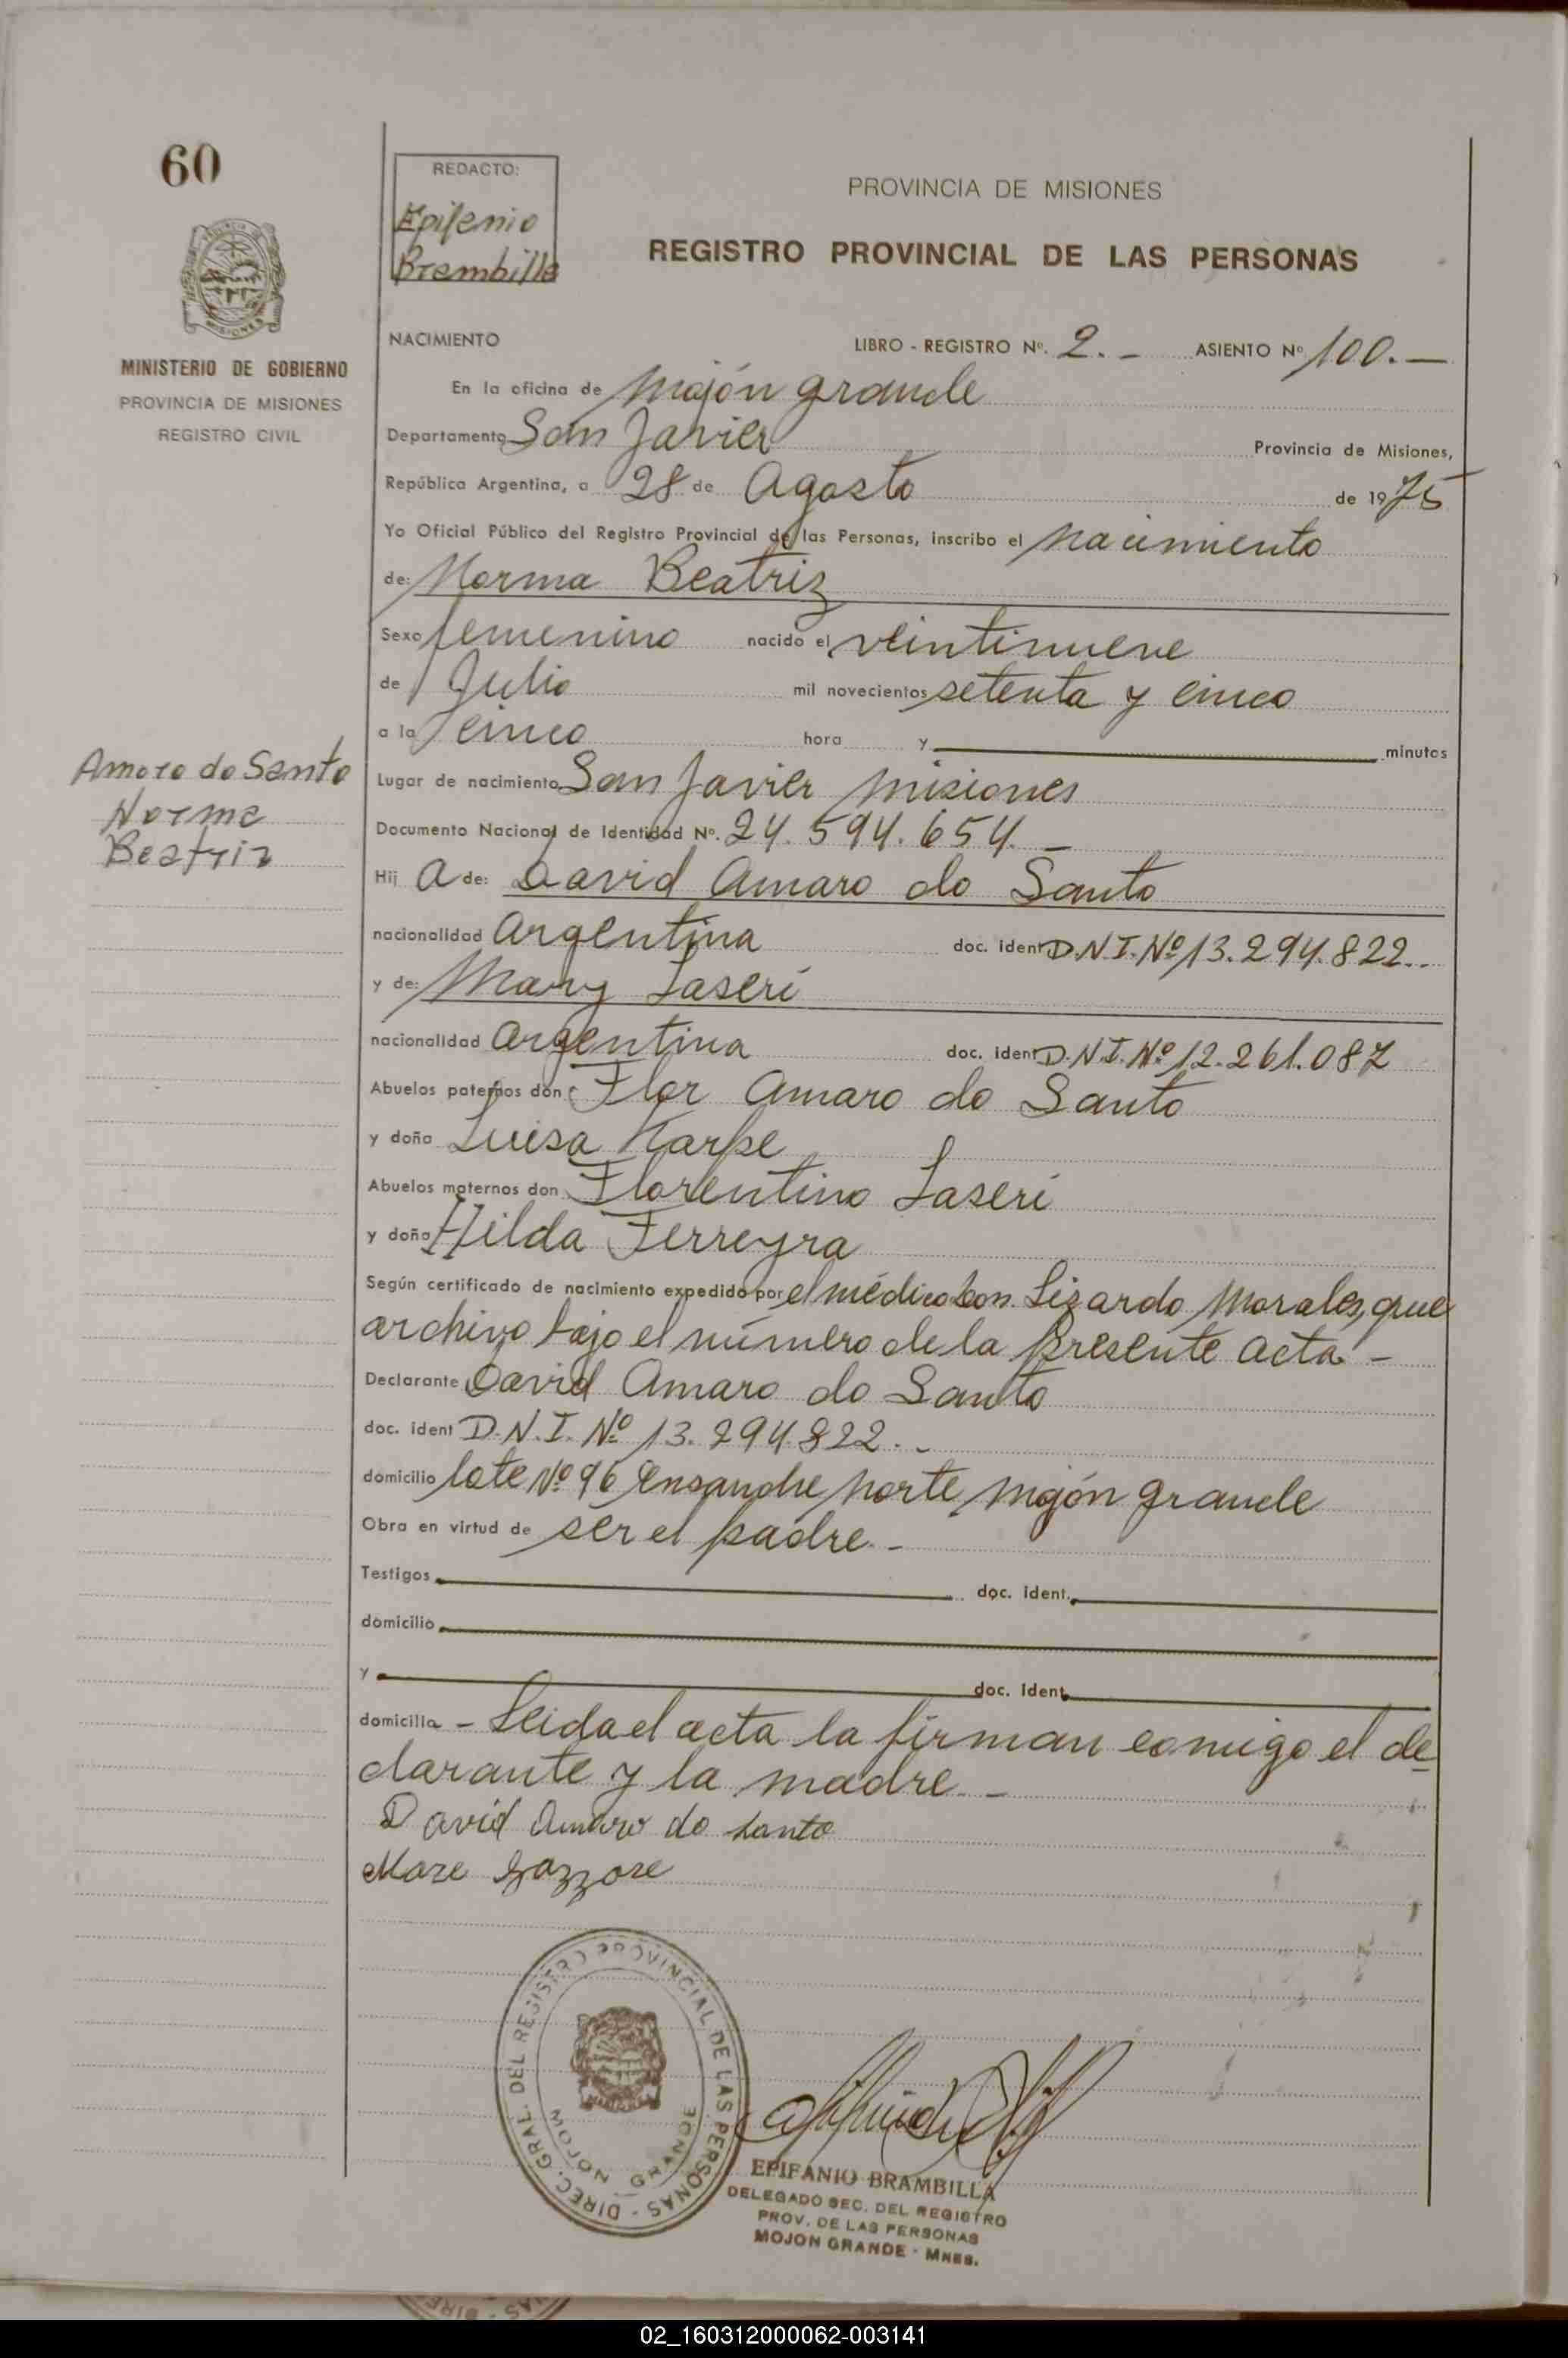 60
REDACTO:
Epifanio
Brambilla
PROVINCIA DE MISIONES
REGISTRO PROVINCIAL DE LAS PERSONAS
MISIONES
MINISTERIO DE GOBIERNO
PROVINCIA DE MISIONES
REGISTRO CIVIL
NACIMIENTO LIBRO - REGISTRO Nº. 2.- ASIENTO Nº 100.-
En la oficina de Mojón grande
Departamento San Javier Provincia de Misiones,
República Argentina, a 28 de Agosto de 1975
Yo Oficial Público del Registro Provincial de las Personas, inscribo el nacimiento
de: Norma Beatriz
Sexo femenino nacido el veintinueve
de Julio mil novecientos setenta y cinco
a la cinco hora y minutos
Amaro do Santo
Norma
Beatriz
Lugar de nacimiento San Javier Misiones
Documento Nacional de Identidad Nº. 24.594.654.-
Hij a de: David Amaro do Santo
nacionalidad Argentina doc. ident D.N.I. Nº 13.294.822..
y de: Mary Laseri
nacionalidad Argentina doc. ident D.N.I. Nº 12.261.087
Abuelos paternos don: Flor Amaro do Santo
y doña Luisa Karpe
Abuelos maternos don Florentino Laseri
y doña Hilda Ferreyra
Según certificado de nacimiento expedido por el médico Don. Lizardo Morales, que
archivo bajo el número de la presente acta -
Declarante David Amaro do Santo
doc. ident D.N.I. Nº 13.294.822.-
domicilio lote Nº 96 Ensanche norte, Mojón grande
Obra en virtud de ser el padre.-
Testigos doc. ident.
domicilio
y doc. ident.
domicilio - Leida el acta la firman comigo el de
clarante y la madre.-
David Amaro do Santo
Mare
DIREC. GRAL. DEL REJISTRO PROVINCIAL DE LAS PERSONAS -
MOJON GRANDE
EPIFANIO BRAMBILLA
DELEGADO SEC. DEL REGISTRO
PROV. DE LAS PERSONAS
MOJON GRANDE - MNES.
02_160312000062-003141